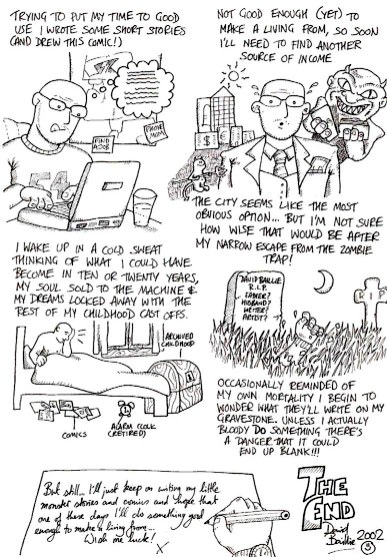 TRYING TO PUT MY TIME TO GOOD
USE I WROTE SOME SHORT STORIES
(AND DREW THIS COMIC!)
FIND
A JOB
PHONE
MUM
NOT GOOD ENOUGH (YET) TO
MAKE A LIVING FROM, SO SOON
I'LL NEED TO FIND ANOTHER
SOURCE OF INCOME
$
€
THE CITY SEEMS LIKE THE MOST
OBVIOUS OPTION... BUT I'M NOT SURE
HOW WISE THAT WOULD BE AFTER
MY NARROW ESCAPE FROM THE ZOMBIE
TRAP!
I WAKE UP IN A COLD SWEAT
THINKING OF WHAT I COULD HAVE
BECOME IN TEN OR TWENTY YEARS,
MY SOUL SOLD TO THE MACHINE &
MY DREAMS LOCKED AWAY WITH THE
REST OF MY CHILDHOOD CAST OFFS.
ARCHIVED
CHILDHOOD
COMICS
ALARM CLOCK
(RETIRED)
DAVID BAILLIE
R.I.P.
FATHER?
HUSBAND?
WRITER?
ARTIST?
R.I.P
OCCASIONALLY REMINDED OF
MY OWN MORTALITY I BEGIN TO
WONDER WHAT THEY'LL WRITE ON MY
GRAVESTONE. UNLESS I ACTUALLY
BLOODY DO SOMETHING THERE'S
A DANGER THAT IT COULD
END UP BLANK!!!
But still... I'll just keep on writing my little
monster stories and comics and hope that
one of these days I'll do something good
enough to make a living from...
Wish me luck!
X
THE
END
David
Baillie
2002
©